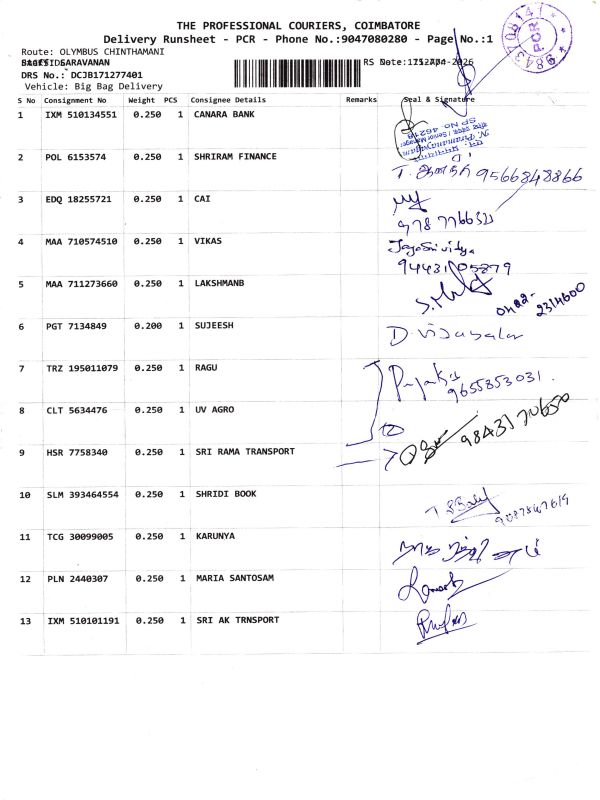 THE PROFESSIONAL COURIERS, COIMBATORE
Delivery Runsheet - PCR - Phone No.:9047080280 - Page No.:1
Route: OLYMBUS CHINTHAMANI
DRS No.: DCJB171277401
Vehicle: Big Bag Delivery
S No Consignment No Weight PCS Consignee Details Remarks Seal & Signature
1 IXM 510134551 0.250 1 CANARA BANK
Senior Manager
SP No. 46218
2 POL 6153574 0.250 1 SHRIRAM FINANCE
T. ஆனந்த் 9566848866
3 EDQ 18255721 0.250 1 CAI
4 MAA 710574510 0.250 1 VIKAS
94431 05879
5 MAA 711273660 0.250 1 LAKSHMANB
0422-
2314600
6 PGT 7134849 0.200 1 SUJEESH
7 TRZ 195011079 0.250 1 RAGU
9655853031.
8 CLT 5634476 0.250 1 UV AGRO
9843170650
9 HSR 7758340 0.250 1 SRI RAMA TRANSPORT
10 SLM 393464554 0.250 1 SHRIDI BOOK
11 TCG 30099005 0.250 1 KARUNYA
12 PLN 2440307 0.250 1 MARIA SANTOSAM
13 IXM 510101191 0.250 1 SRI AK TRNSPORT
PCR